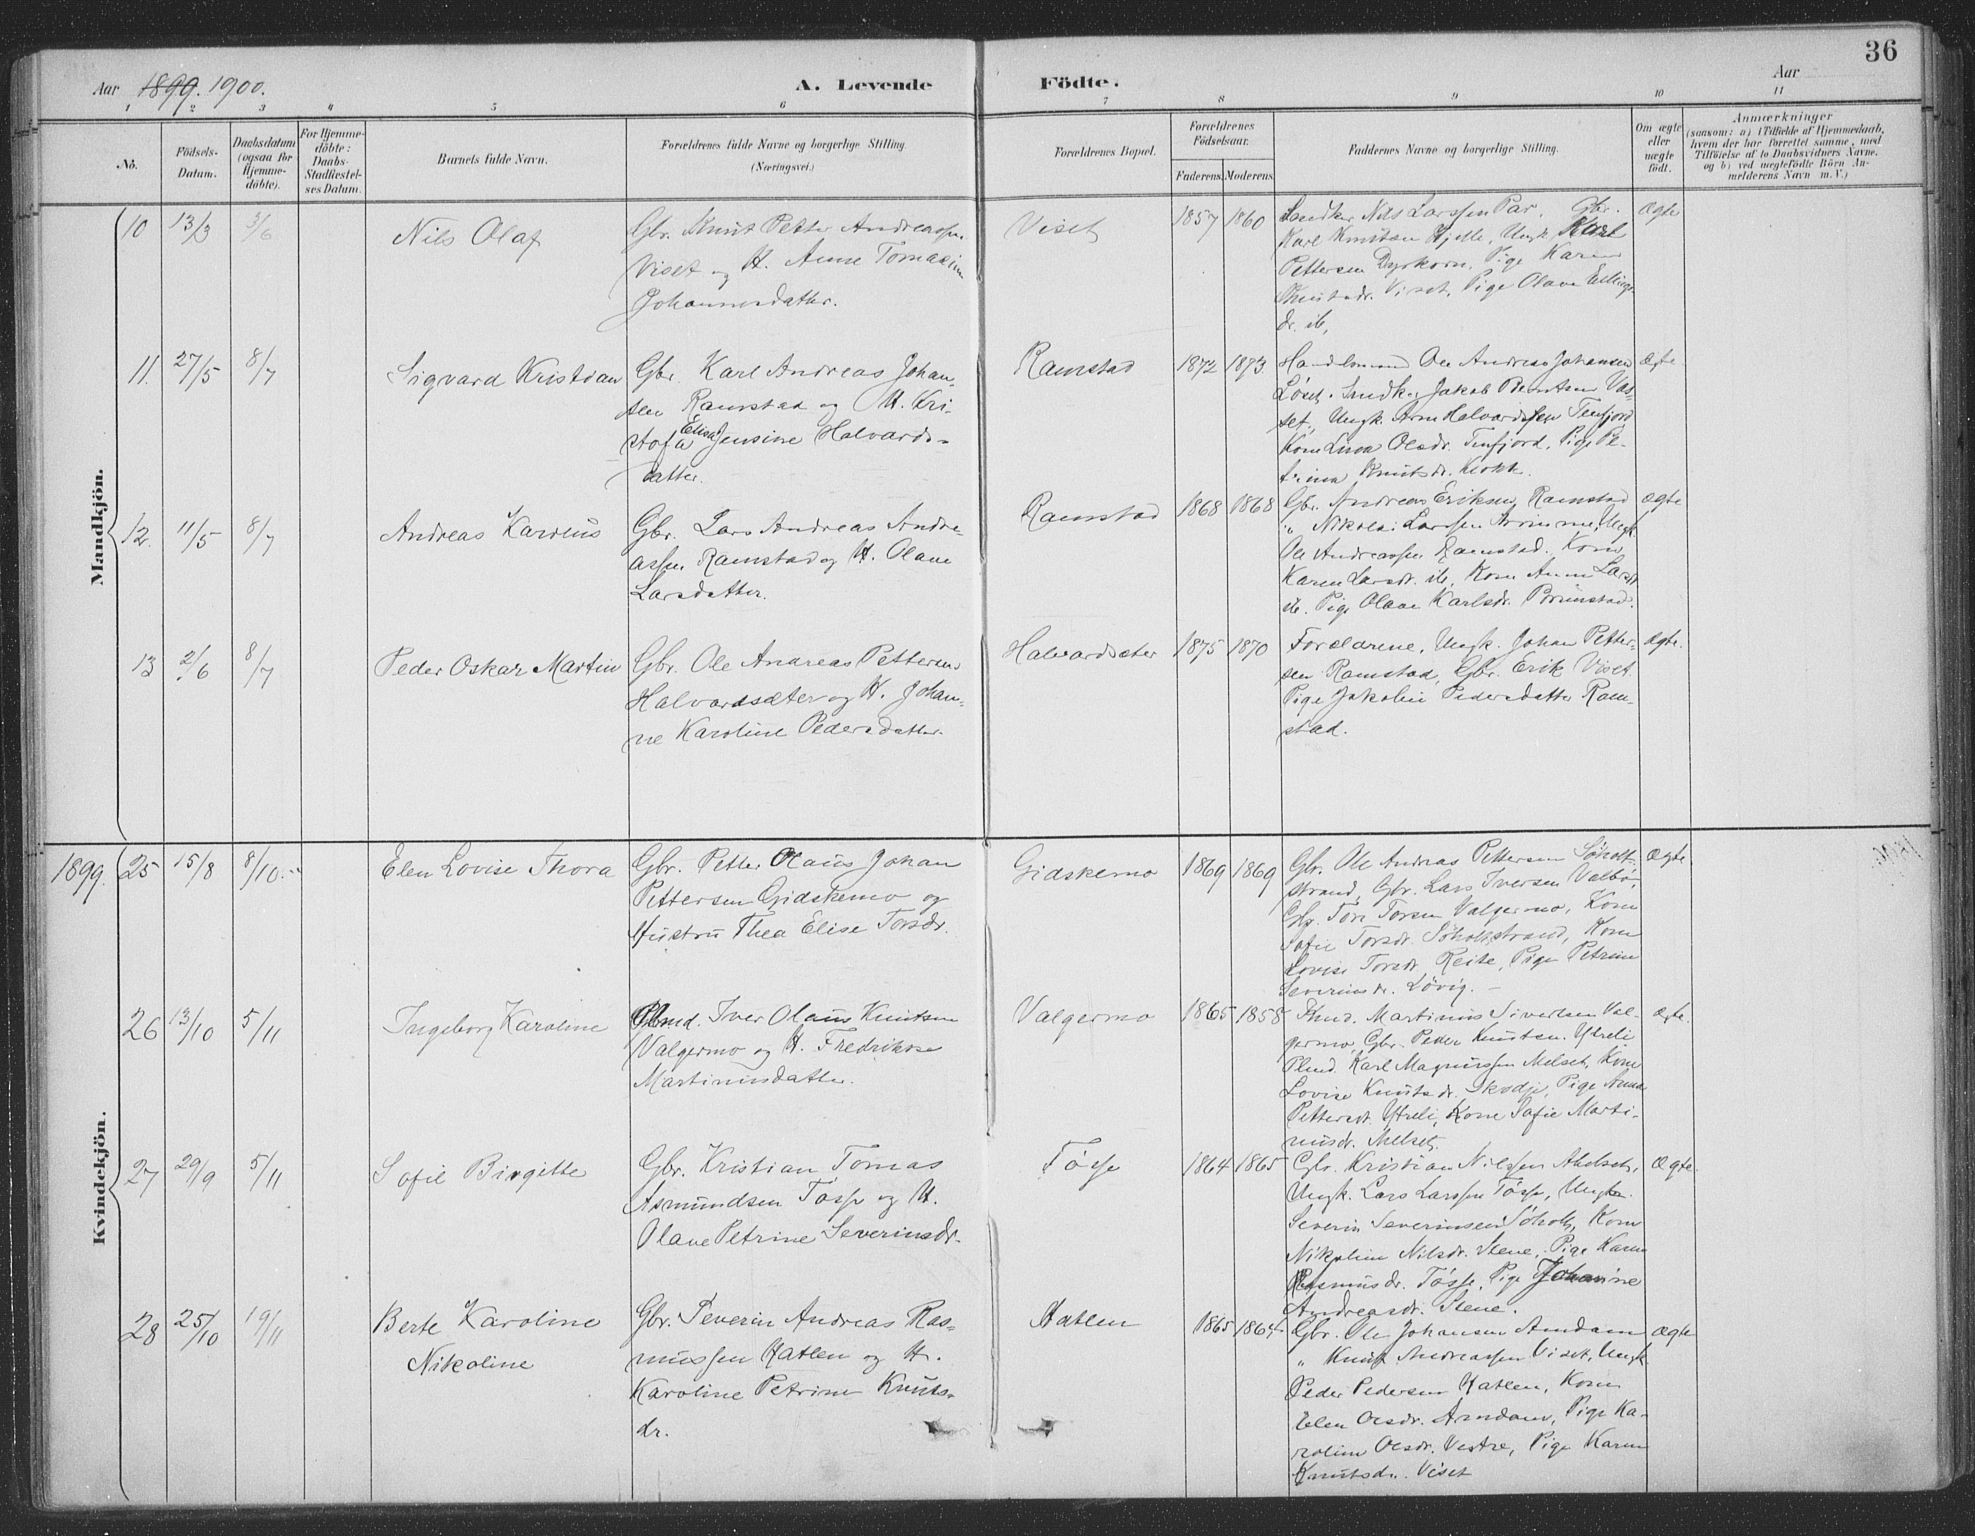 36
Aar 1899. 1900.
A. Levende Födte.
Aar
1 2 3 4 5 6 7 8 9 10 11
No.
Födsels-Datum.
Daabsdatum (ogsaa for Hjemme-döbte).
For Hjemme-döbte: Daabs-Stadfæstel-ses Datum.
Barnets fulde Navn.
Forældrenes fulde Navne og borgerlige Stilling. (Næringsvei.)
Forældrenes Bopæl.
Forældrenes Födselsaar.
Faderens. Moderens.
Faddernes Navne og borgerlige Stilling.
Om ægte eller uægte födt.
Anmærkninger
(saasom: a) i Tilfælde af Hjemmedaab,
hvem der har forrettet samme, med
Tilföielse af to Daabsvidners Navne,
og b) ved uægtefödte Börn An-
melderens Navn m. V.)
Mandkjön.
10 13/3 3/6
Nils Olaf
Gbr. Knut Petter Andreassen
Viset og H. Anne Tomasine
Johannesdatter.
Viset
1857 1860
Landker Nils Larssen Par, Gbr.
Karl Knutsen Hjelle, Ungk. Karl
Pettersen Dyrkorn, Pige Karen
Knutsdr. Viset, Pige Olave Ellings-
dr. ib,
Ægte
11. 27/5 8/7
Sigvard Kristian
Gbr. Karl Andreas Johan-
sen Ramstad og H. Kri-
stofa Elisa Jensine Halvards-
datter.
Ramstad
1872 1873.
Handelsmand Ole Andreas Johansen
Løset. Landk. Jakob Berntsen Vas-
set, Ungk. Arne Halvardssen Tenfjord
Kone Lina Olsdr. Tenfjord, Pige Pe-
trine Knutsdr. Klokk.
Ægte
12. 11/5 8/7
Andreas Karelius
Gbr. Lars Andreas Andre-
assen. Ramstad og H. Olave
Larsdatter.
Ramstad
1868 1868
Gbr. Andreas Eriksen, Ramstad
" Nikolai Larssen Ungk.
Ole Andreassen Ramstad. Kone
Karen Larsdr. ib, Kone Anne Larsdr
ib. Pige Olave Karlsdr. Brunstad.
Ægte
13 2/6 8/7
Peder Oskar Martin
Gbr. Ole Andreas Pettersen
Halvardsæter og H. Johan-
ne Karoline Pedersdatter.
Halvardsæter
1875 1870
Forældrene, Ungk. Johan Petter-
sen Ramstad, Gbr. Erik Viset
Pige Jakobine Pedersdatter Ram-
stad.
Ægte.
1899.
Kvindekjön.
25 15/8 8/10.
Elen Lovise Thora
Gbr. Petter Olaus Johan
Pettersen Gidskemo og
Hustru Thea Elise Torsdr.
Gidskemo
1869 1869
Gbr. Ole Andreas Pettersen Søholt-
strand, Gbr. Lars Iversen Valbø,
Gbr. Tore Torsen Valgermo, Kone
Sofie Torsdr. Søholtstrand, Kone
Lovise Torsdr. Reite, Pige Petrine
Severinsdr. Løvig. –
Ægte
26 13/10 5/11
Ingeborg Karoline
Plmd. Iver Olaus Knutsen
Valgermo og H. Fredrikke
Martinusdatter.
Valgermo
1865 1858
Plmd. Martinus Sivertsen Val-
germo, Gbr. Peder Knutsen. Ytreli
Plmd. Karl Magnussen Melset, Kone
Lovise Knutsdr. Skodje, Pige Anne
Pettersdr. Ytreli, Kone Sofie Marti-
nusdr. Melset.
Ægte.
27 29/9 5/11
Sofie Birgitte
Gbr. Kristian Tomas
Asmundsen Tøsse og H.
Olave Petrine Severinsdr.
Tøsse
1864 1865
Gbr. Kristian Nilssen Akslset,
Ungk. Lars Larssen Tøsse, Ungk.
Severin Severinsen Søholt, Kone
Nikoline Nilsdr. Stene, Pige Karen
Rasmusdr. Tøsse, Pige Johanne
Andreasdr. Stene.
Ægte.
28 25/10 19/11
Berte Karoline
Nikoline
Gbr. Severin Andreas Ras-
mussen Hatlen og H.
Karoline Petrine Knuts-
dr.
Hatlen
1865 1864
Gbr. Ole Johansen Amdam
" Knut Andreassen Viset, Ungk
Peder Pedersen Hatlen, Kone
Elen Olsdr. Amdam, Pige Ka-
roline Olsdr. Vestre, Pige Karen
Knutsdr. Viset
Ægte